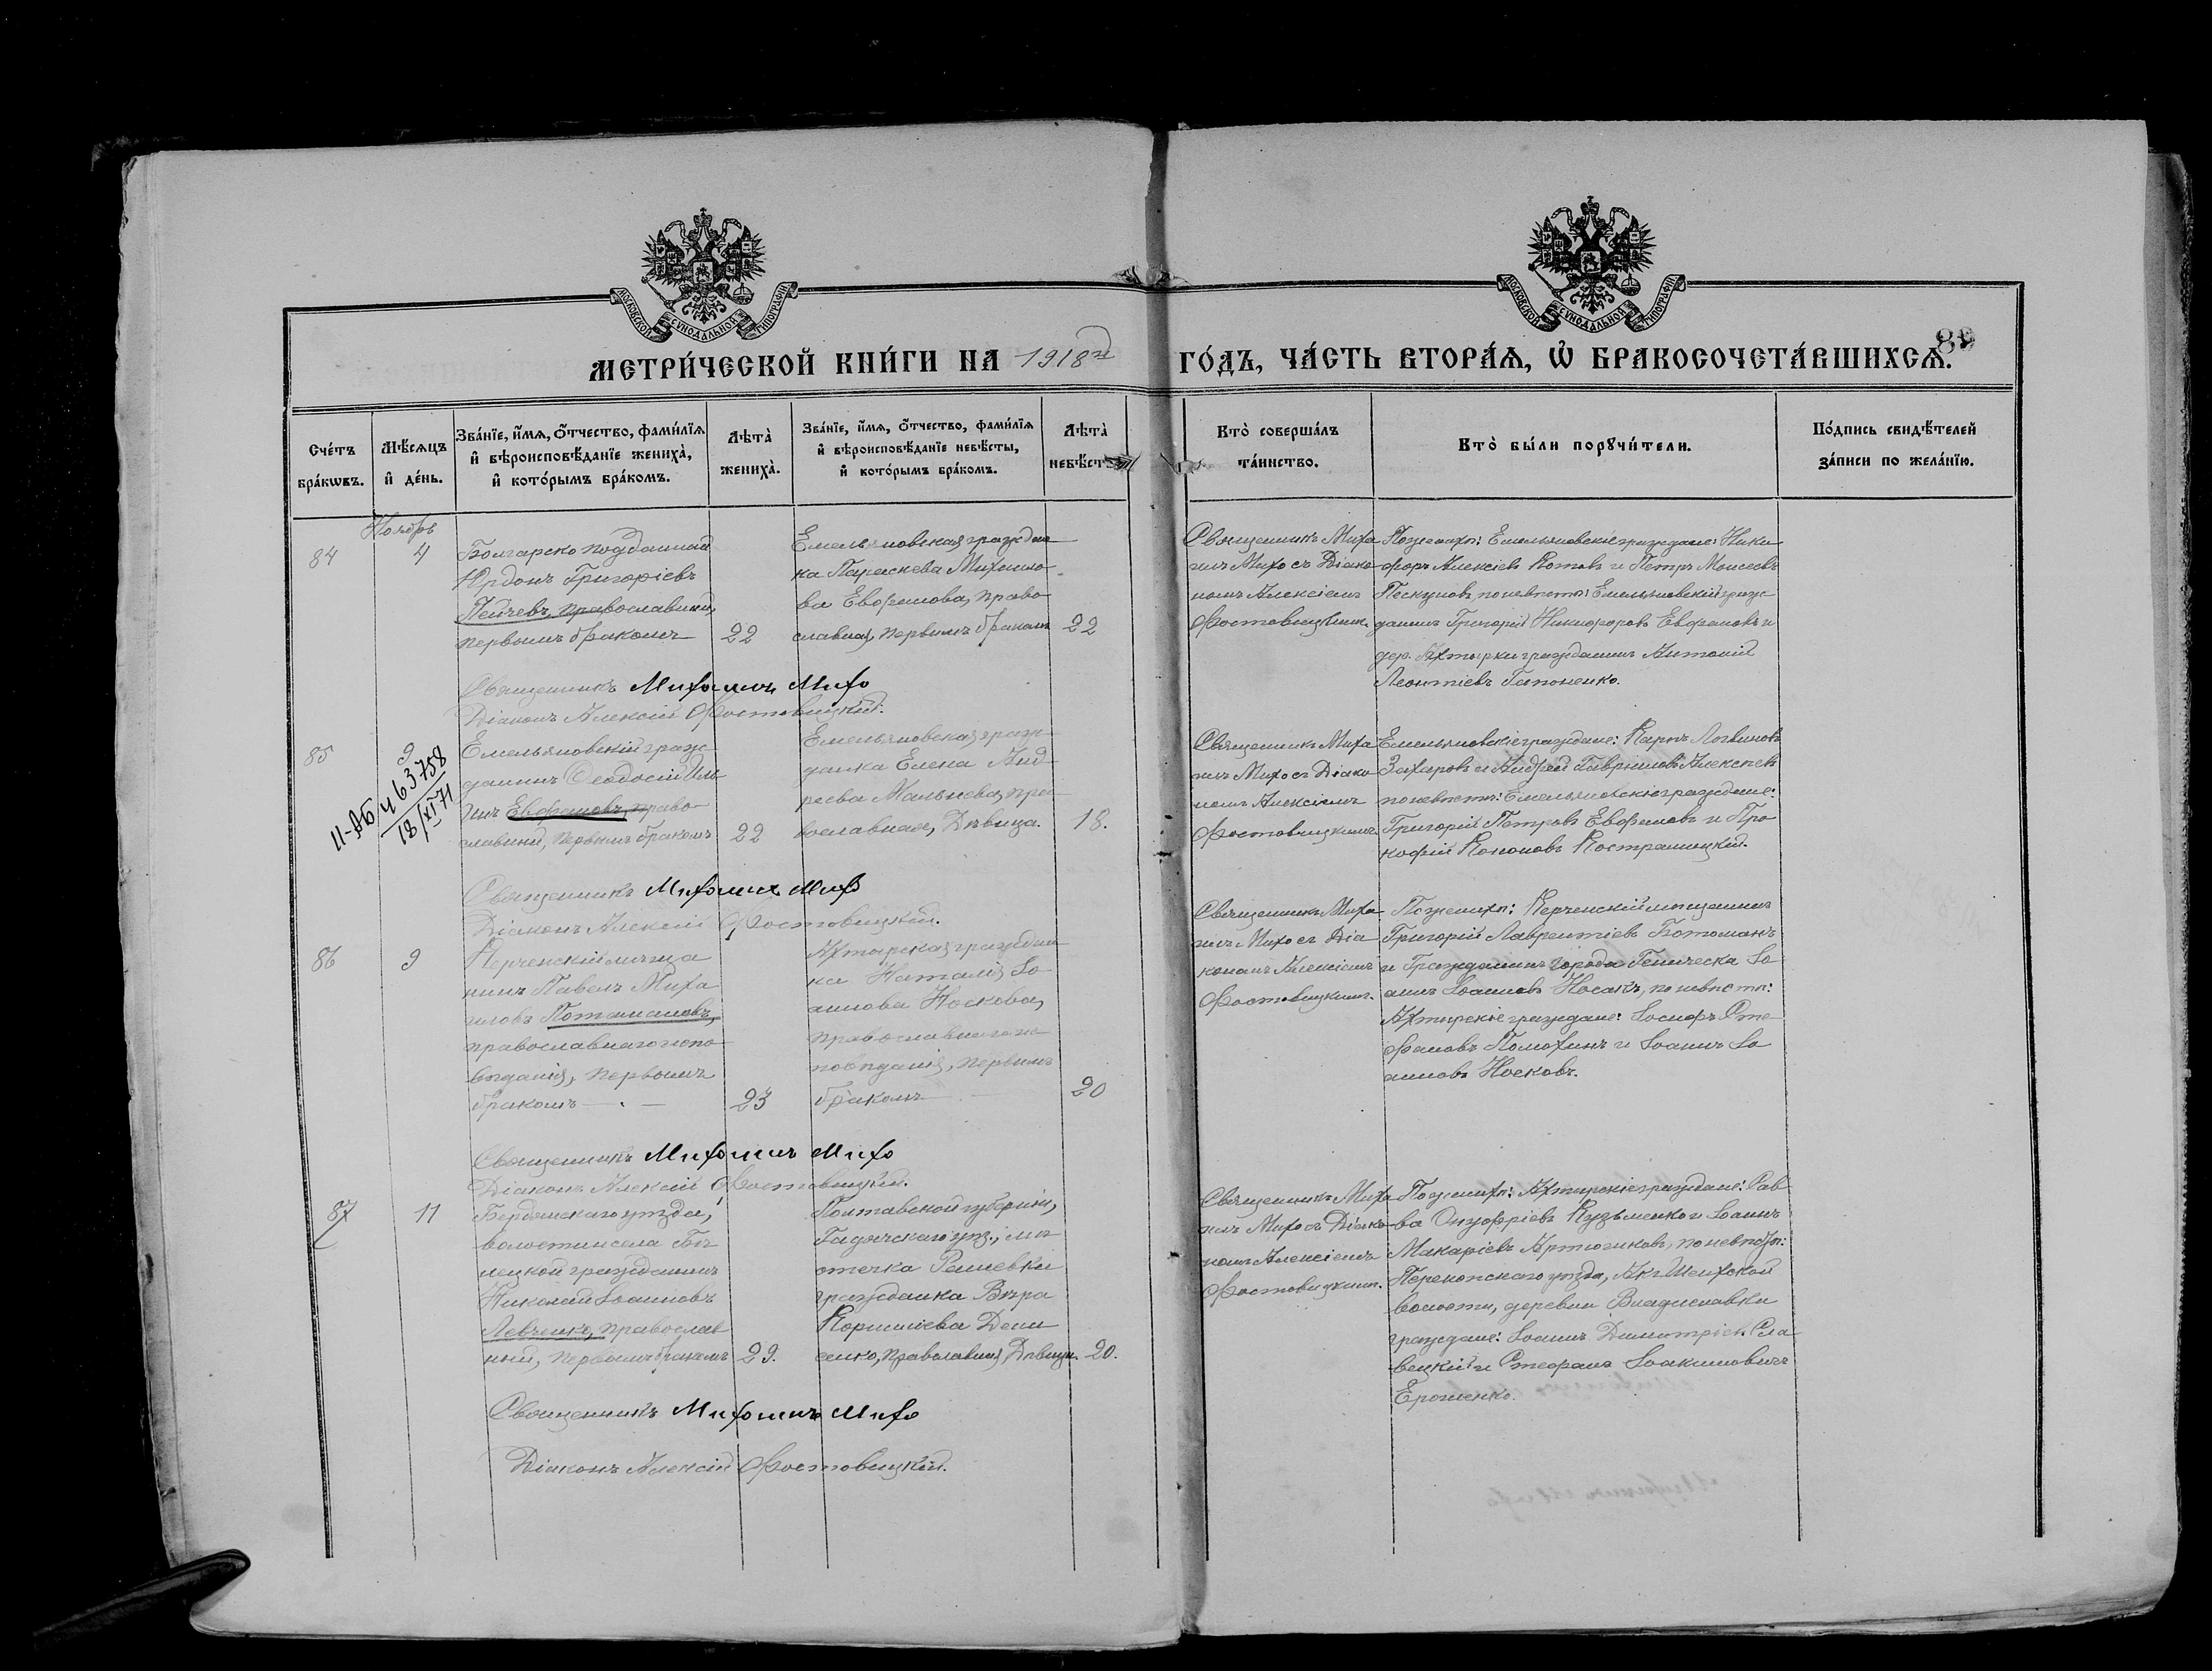 МОСКОВСКОЙ СѴНОДАЛЬНОЙ ТИПОГРАФІИ
МОСКОВСКОЙ СѴНОДАЛЬНОЙ ТИПОГРАФІИ
МЕТРИ́ЧЕСКОЙ КНИ́ГИ НА 1918й
ГО́ДЪ, ЧА́СТЬ ВТОРА́Я, Ѡ҆ БРАКОСОЧЕТА́ВШИХСѦ.
89
Сче́тъ
бра́кѡвъ.
Мѣ́сяцъ
и҆ де́нь.
Зва́нїе, и҆́мѧ, ѻ҆́тчество, фами́лїѧ
и҆ вѣроисповѣ́данїе жениха̀,
и҆ кото́рымъ бра́комъ.
Лѣта̀
жениха̀.
Зва́нїе, и҆́мѧ, ѻ҆́тчество, фами́лїѧ
и҆ вѣроисповѣ́данїе невѣ́сты,
и҆ кото́рымъ бра́комъ.
Лѣта̀
невѣ́сты
Кто̀ соверша́лъ
та́инство.
Кто̀ бы́ли порꙋчи́тели.
По́дпись свидѣ́телей
за́писи по жела́нїю.
Ноябрь
84
4
Болгарско подданный
Юрдонъ Григоріевъ
Пейчевъ, православный,
первымъ бракомъ
22
Емельяновская граждан
ка Параскева Михаило
ва Евфемова, право
славная, первымъ бракомъ
22
Священникъ Миха
илъ Михо съ Діако
номъ Алексіемъ
Фостовицкимъ.
По женихѣ: Емельяновскіе граждане: Ники
форъ Алексіевъ Котовъ и Петръ Моисеевъ
Пескуновъ, по невѣстѣ: Емельяновскій граж
данинъ Григорій Никифоровъ Евфемовъ и
дер. Ахтырки гражданинъ Антоній
Леонтіевъ Гапоненко.
Священникъ Михаилъ Михо
Діаконъ Алексій Фостовицкій.
85
9
II-АБ 463758
18/XI 71
Емельяновскій граж
данинъ Феодосій Иль
инъ Евфемовъ, право
славный, первымъ бракомъ
22
Емельяновская граж
данка Елена Анд
реева Мальцева, пра
вославная, дѣвица.
18.
Священникъ Миха
илъ Михо съ Діако
номъ Алексіемъ
Фостовицкимъ.
Емельяновскіе граждане: Карпъ Логвиновъ
Захаровъ и Андрей Гавриловъ Алексѣев
по невѣстѣ: Емельяновскіе граждане:
Григорій Петровъ Евфемовъ и Про
кофій Кононовъ Костраницкій.
Священникъ Михаилъ Михо
Діаконъ Алексій Фостовицкій.
86
9
Керченскій мѣща
нинъ Павелъ Миха
иловъ Потамановъ,
православнаго испо
вѣданія, первымъ
бракомъ
23
Ахтырская граждан
ка Наталія Іо
аннова Носкова,
православнаго ис
повѣданія, первымъ
бракомъ
20
Священникъ Миха
илъ Михо съ Діа
кономъ Алексіемъ
Фостовицкимъ.
По женихѣ: Керченскій мѣщанинъ
Григорій Лаврентіевъ Ботоманъ
и Гражданинъ города Геническа Іо
аннъ Іоанновъ Носакъ, по невѣстѣ:
Ахтырскіе граждане: Іосифъ Сте
фановъ Помохинъ и Іоаннъ Іо
анновъ Носковъ.
Священникъ Михаилъ Михо
Діаконъ Алексій Фостовицкій.
87
11
Бердянскаго уѣзда,
волости и села Бѣ
лецкой гражданинъ
Николай Іоанновъ
Левченко, православ
ный, первымъ бракомъ
29.
Полтавской губерніи,
Гадячскаго уѣз., мѣ
стечка Рашевки
гражданка Вѣра
Корниліева Дени
сенко, православная, дѣвица.
20.
Священникъ Миха
илъ Михо съ Діако
номъ Алексіемъ
Фостовицкимъ.
По женихѣ: Ахтырскіе граждане: Сав
ва Онуфріевъ Кузьменко и Іоаннъ
Макаріевъ Артюховъ, по невѣстѣ:
Перекопскаго уѣзда, Акъ Шеихской
волости, деревни Владиславки
граждане: Іоаннъ Димитріев. Сла
вецкій и Стефанъ Іоакимовичъ
Ерошенко.
Священникъ Михаилъ Михо
Діаконъ Алексій Фостовицкій.